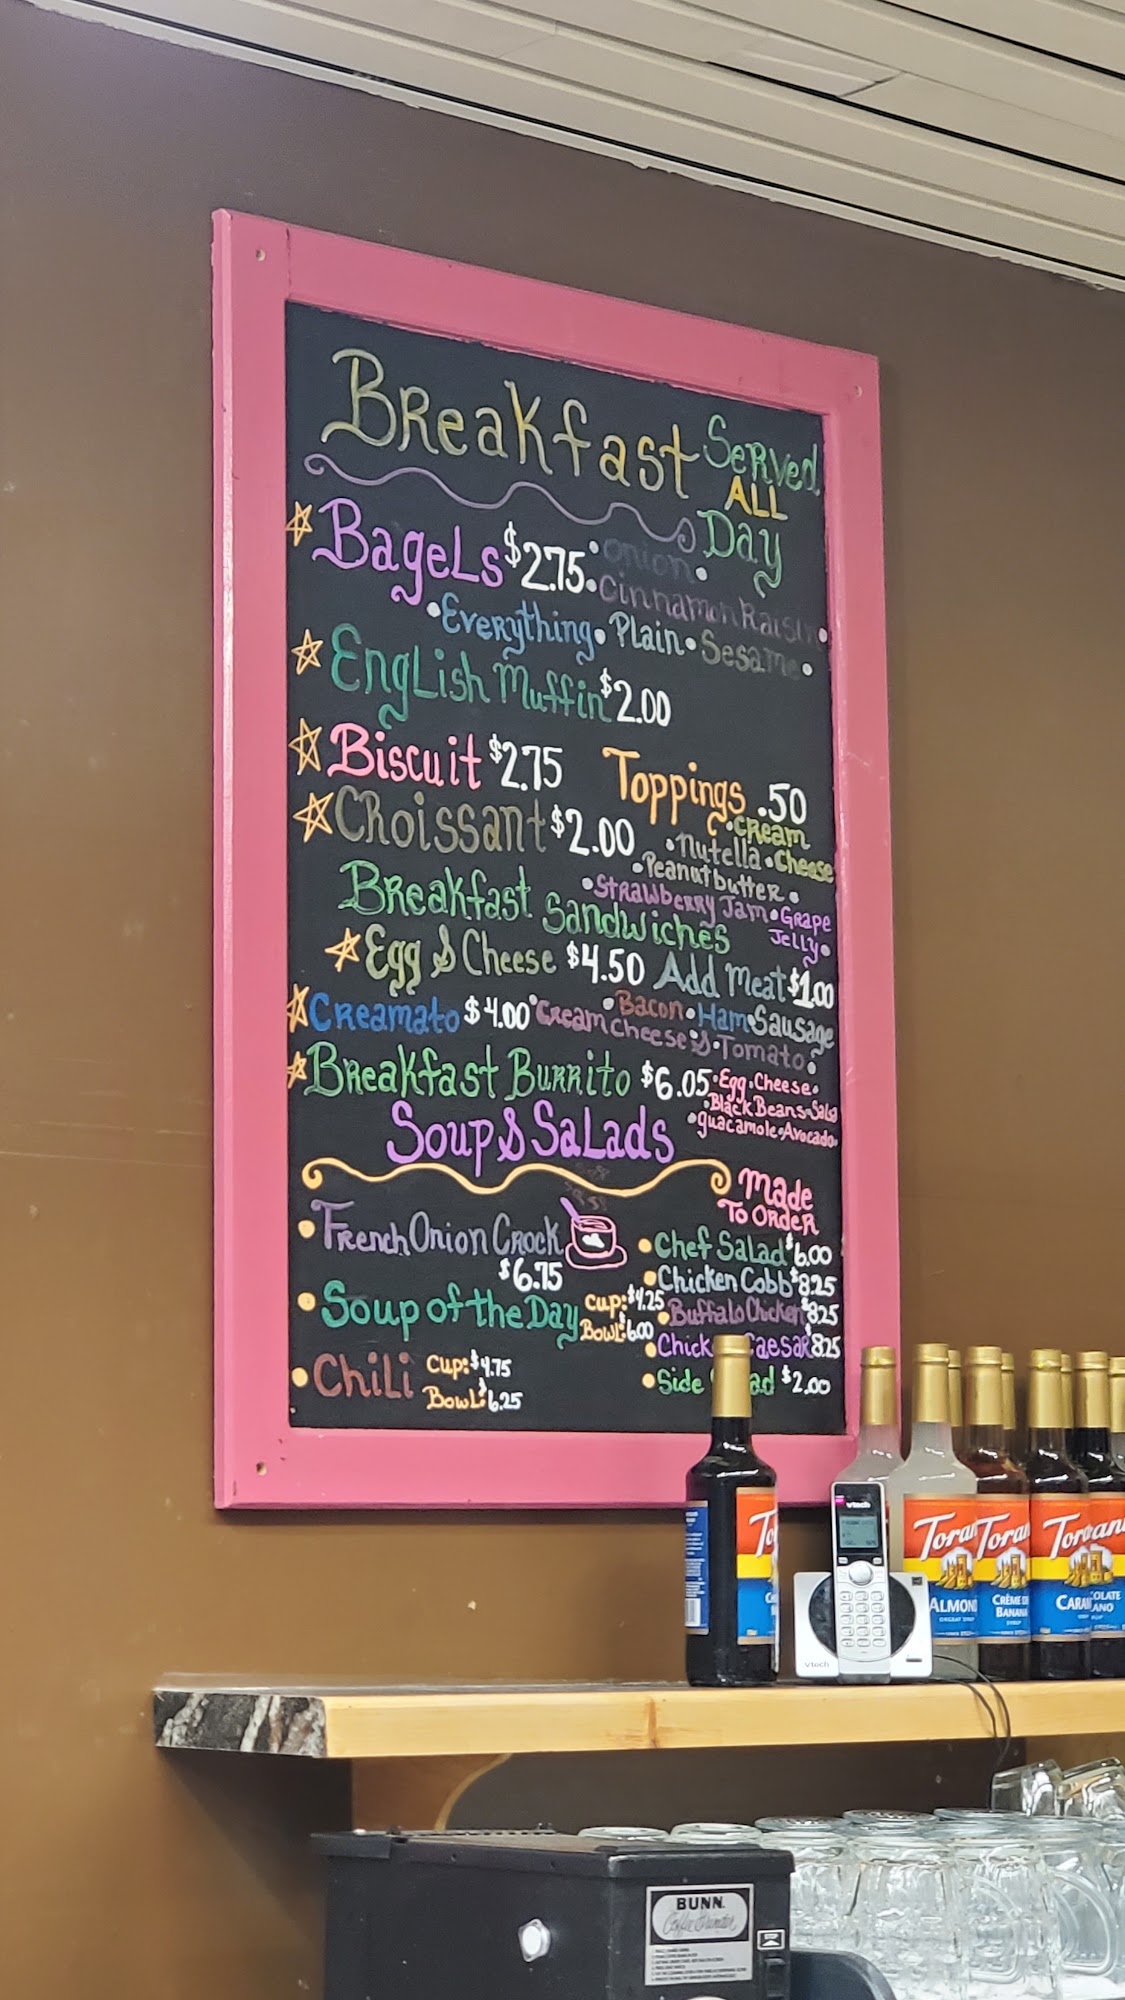 Breakfast Served
ALL
Day
Bagels $2.75 • Onion •
• Cinnamon Raisin •
• Everything • Plain • Sesame •
English Muffin $2.00
Biscuit $2.75
Toppings .50
Croissant $2.00
• Cream Cheese
• Nutella
• Peanut butter •
• Strawberry Jam • Grape Jelly •
Breakfast Sandwiches
Egg & Cheese $4.50 Add Meat $1.00
• Bacon • Ham • Sausage
Creamato $4.00 • Cream Cheese & • Tomato •
Breakfast Burrito $6.05 • Egg • Cheese •
• Black Beans • Salsa
• guacamole • Avocado •
Soup & Salads
Made
To Order
• French Onion Crock
$6.75
• Soup of the Day Cup: $4.25
Bowl: $6.00
• Chili Cup: $4.75
Bowl: $6.25
• Chef Salad $6.00
• Chicken Cobb $8.25
• Buffalo Chicken $8.25
• Chick Caesar $8.25
• Side $2.00
vtech
vtech
Torani
ALMOND
Torani
CRÈME DE
BANANA
Torani
BUNN
Coffee Grinder